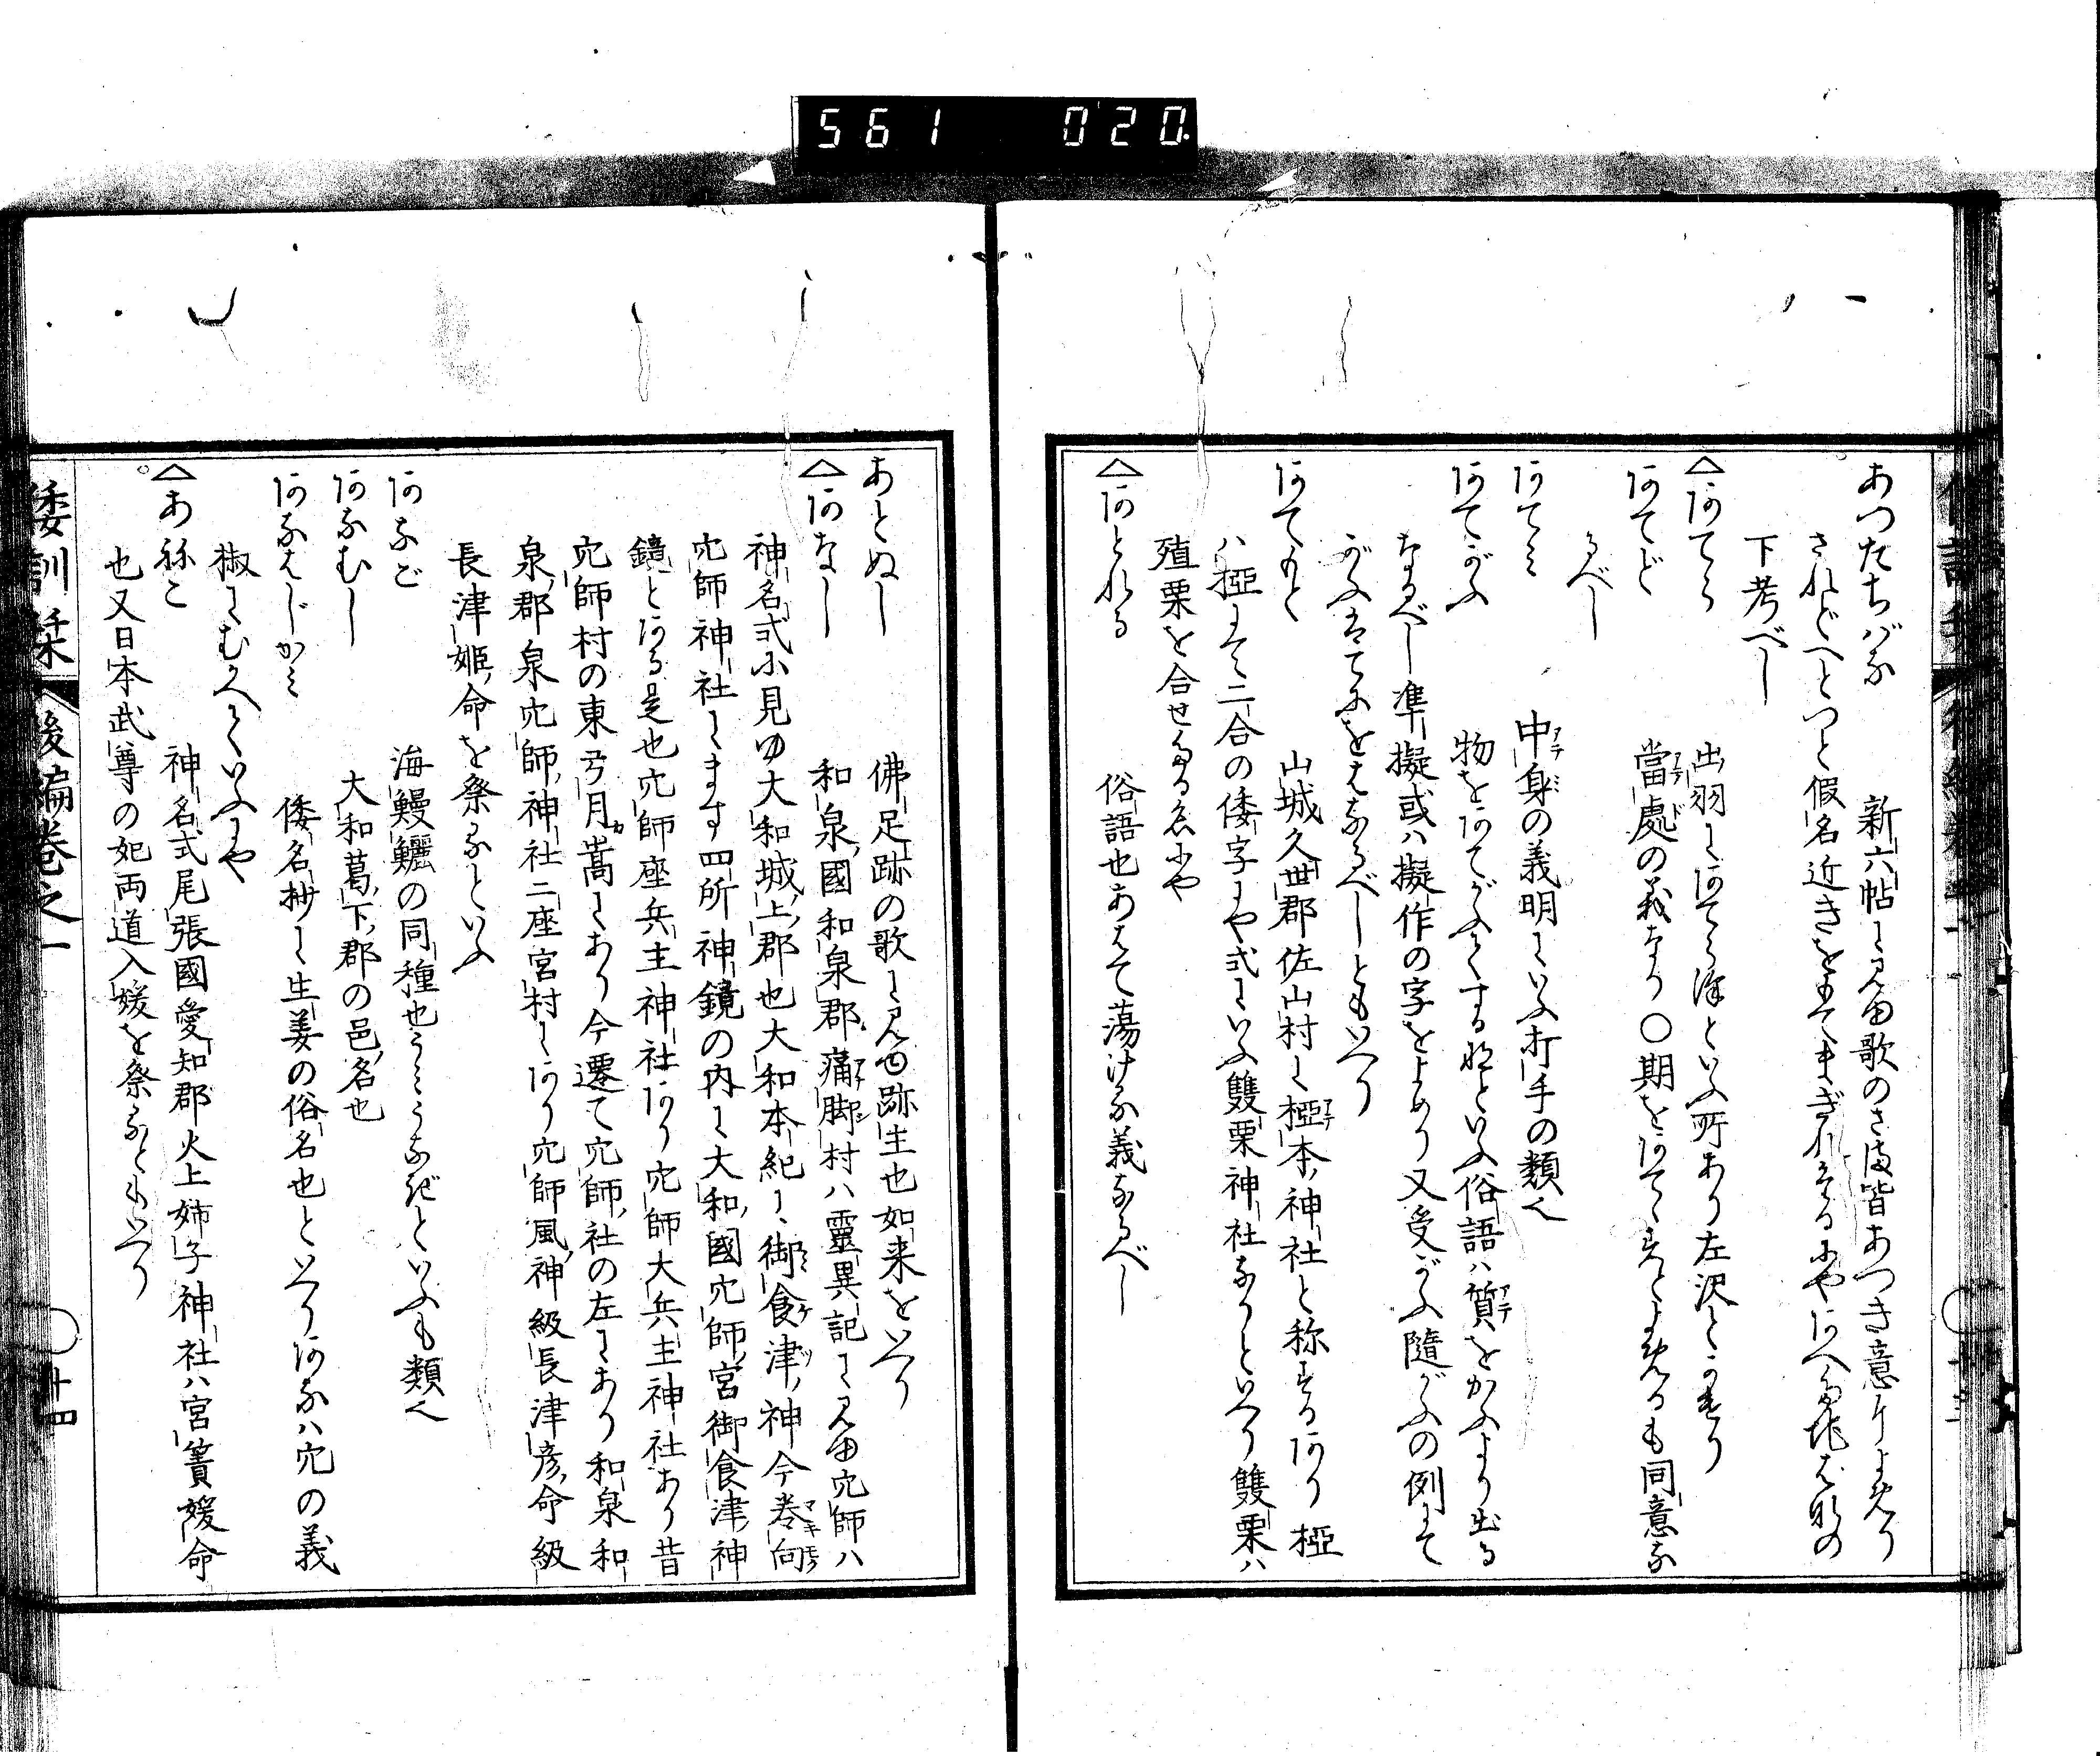 561 020
あつたちばな 新六帖に見ゆ歌のさま皆あつき意によめり
されどへとつと假名近きをもてまぎれたるにやあへたちばなの
下考べし
△あてら 出羽にあてら澤といふ所あり左沢とかけり
あてど 當處の義なり〇期をあてゝ夫とよめるも同意な
るべし
あてミ 中身の義明にいふ打手の類也
あてがふ 物をあてがふてする也といふ俗語ハ質をかふより出る
なるべし準擬或ハ擬作の字をよめり又受がふ隨がふの例にて
がふはてにをはなるべしともいへり
あてもと 山城久世郡佐山村に椏本神社と称するあり椏
ハ椏にて二合の倭字にや式にいふ雙栗神社なりといへり雙栗ハ
殖栗を合せたる名にや
△あとれる 俗語也あはて蕩ける義なるべし
あとぬし 佛足跡の歌に見ゆ跡主也如来をいへり
△あなし 和泉國和泉郡痛脚村ハ靈異記に見ゆ穴師ハ
神名式に見ゆ大和城上郡也大和本紀に御食津神今巻向
穴師神社にます四所神鏡の内に大和國穴師宮御食津神
鏡とある是也穴師座兵主神社あり穴師大兵主神社あり昔
穴師村の東弓月嵩にあり今遷て穴師社の左にあり和泉和
泉郡泉穴師神社二座宮村にあり穴師風神級長津彦命級
長津姫命を祭るといふ
あなご 海鰻鱺の同種也うミうなぎといふも類也
あなむし 大和葛下郡の邑名也
あなはじかミ 倭名抄に生姜の俗名也といへりあなハ穴の義
椒にむかへていふにや
△あねこ 神名式尾張國愛知郡火上姉子神社ハ宮簀媛命
也又日本武尊の妃両道入媛を祭るともいへり
倭訓栞 後編巻之一 十四